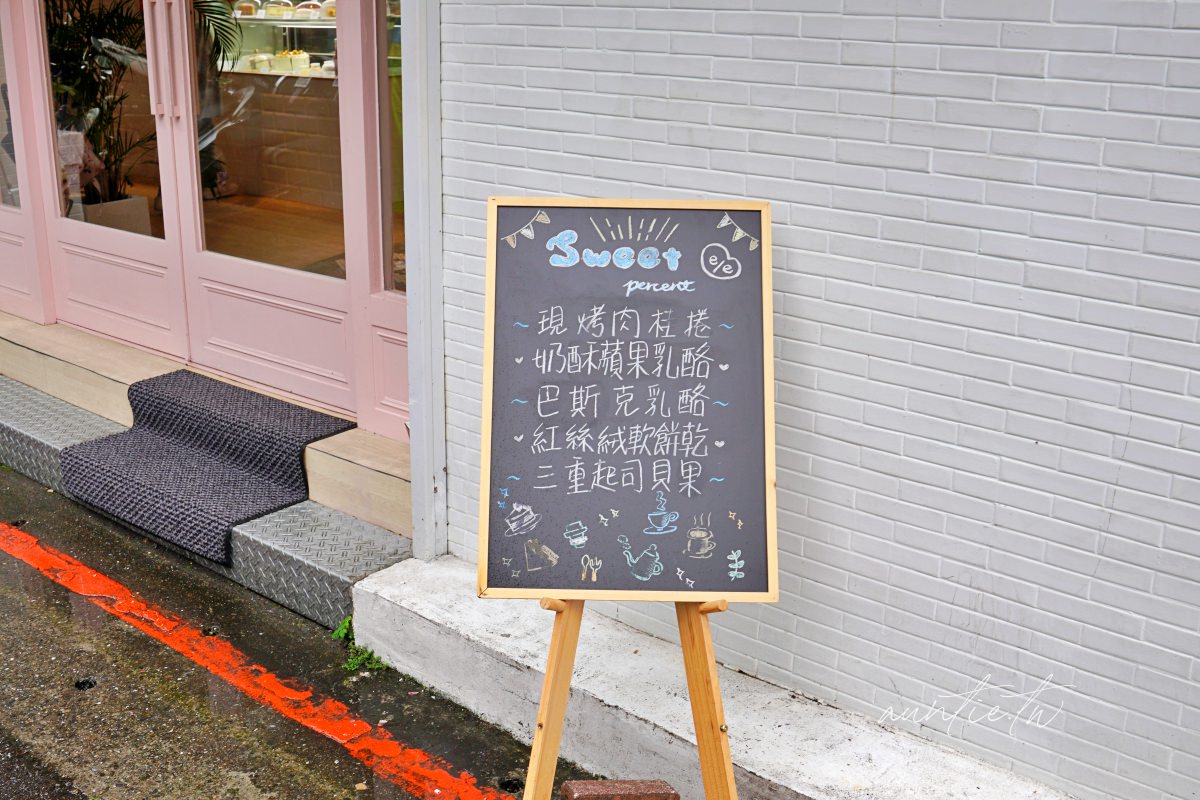 Sweet
percent
e/e
~ 現烤肉桂捲 ~
奶酥蘋果乳酪
~ 巴斯克乳酪 ~
紅絲絨軟餅乾
~ 三重起司貝果 ~
auntie.tw